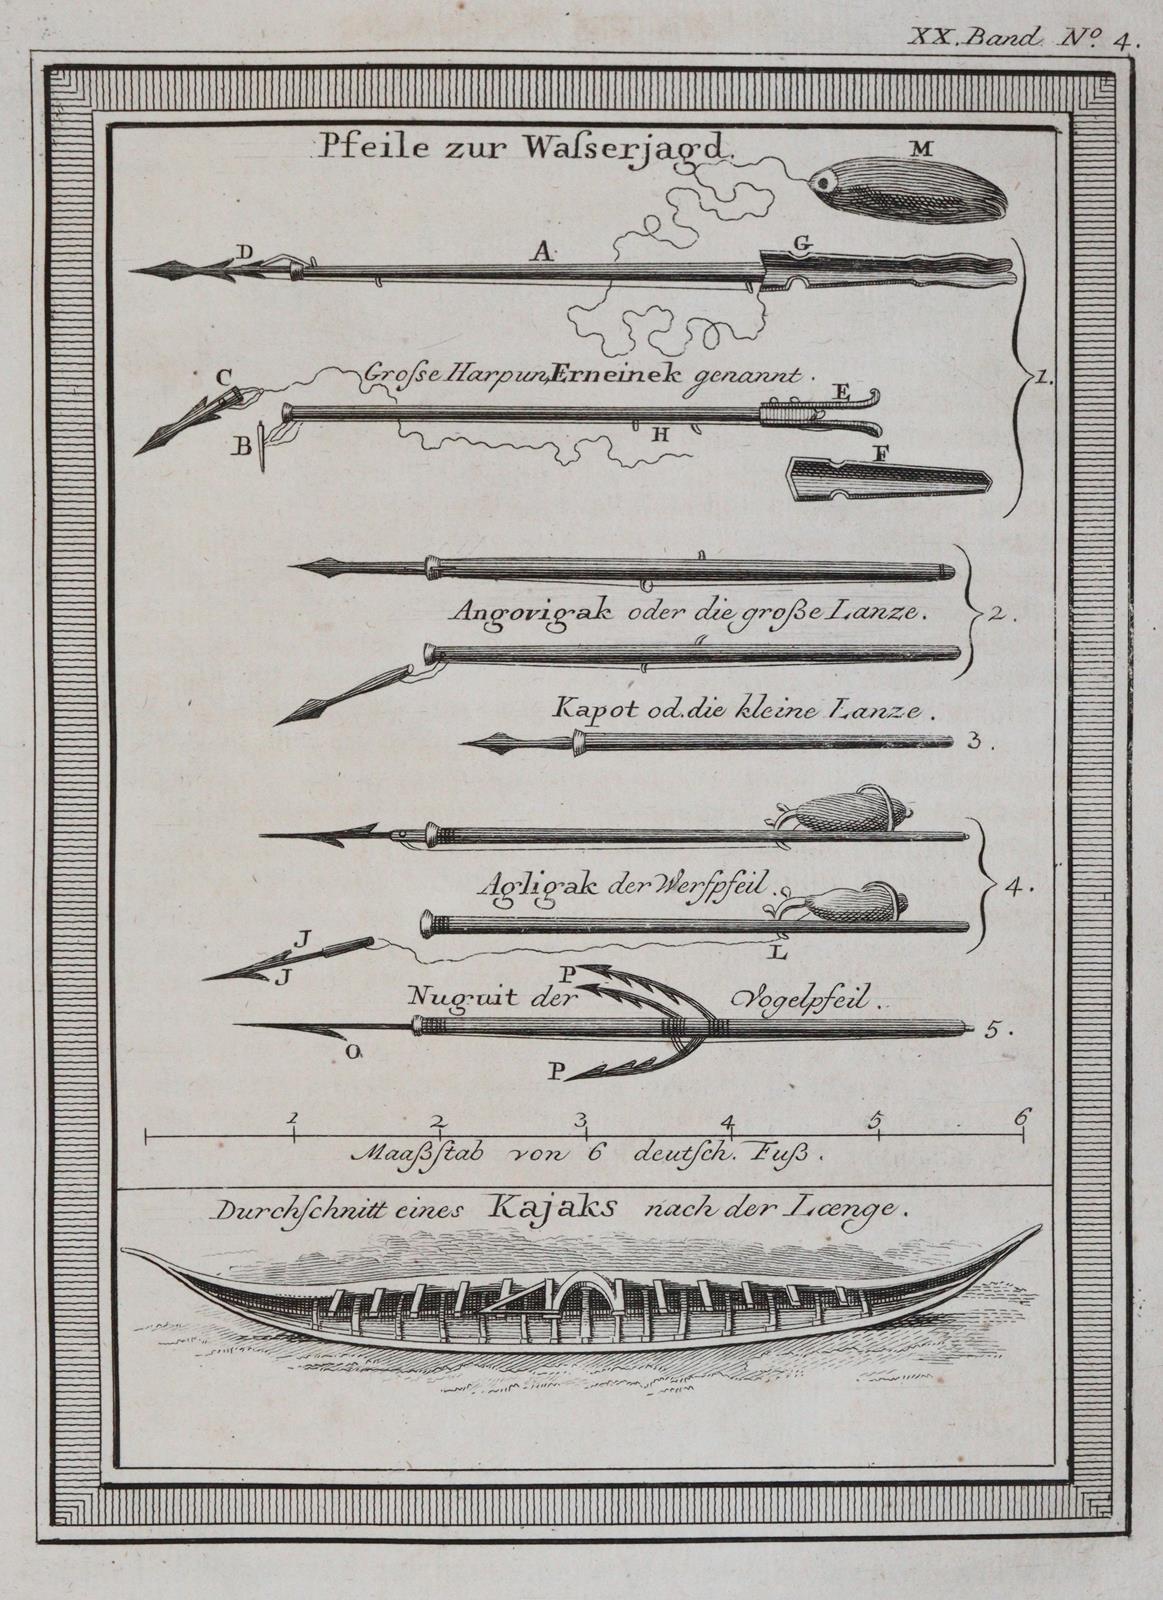 XX. Band. Nº. 4.
Pfeile zur Waſserjagd.
M
D
A
G
C
Groſse Harpun, Erneinek genannt.
E
1.
B
H
F
Angovigak oder die große Lanze.
2.
Kapot od. die kleine Lanze.
3.
Agligak der Werfpfeil.
4.
J
J
L
P
Nuguit der Vogelpfeil.
O
5.
P
1 2 3 4 5 6
Maaßſtab von 6 deutſch. Fuß.
Durchſchnitt eines Kajaks nach der Længe.